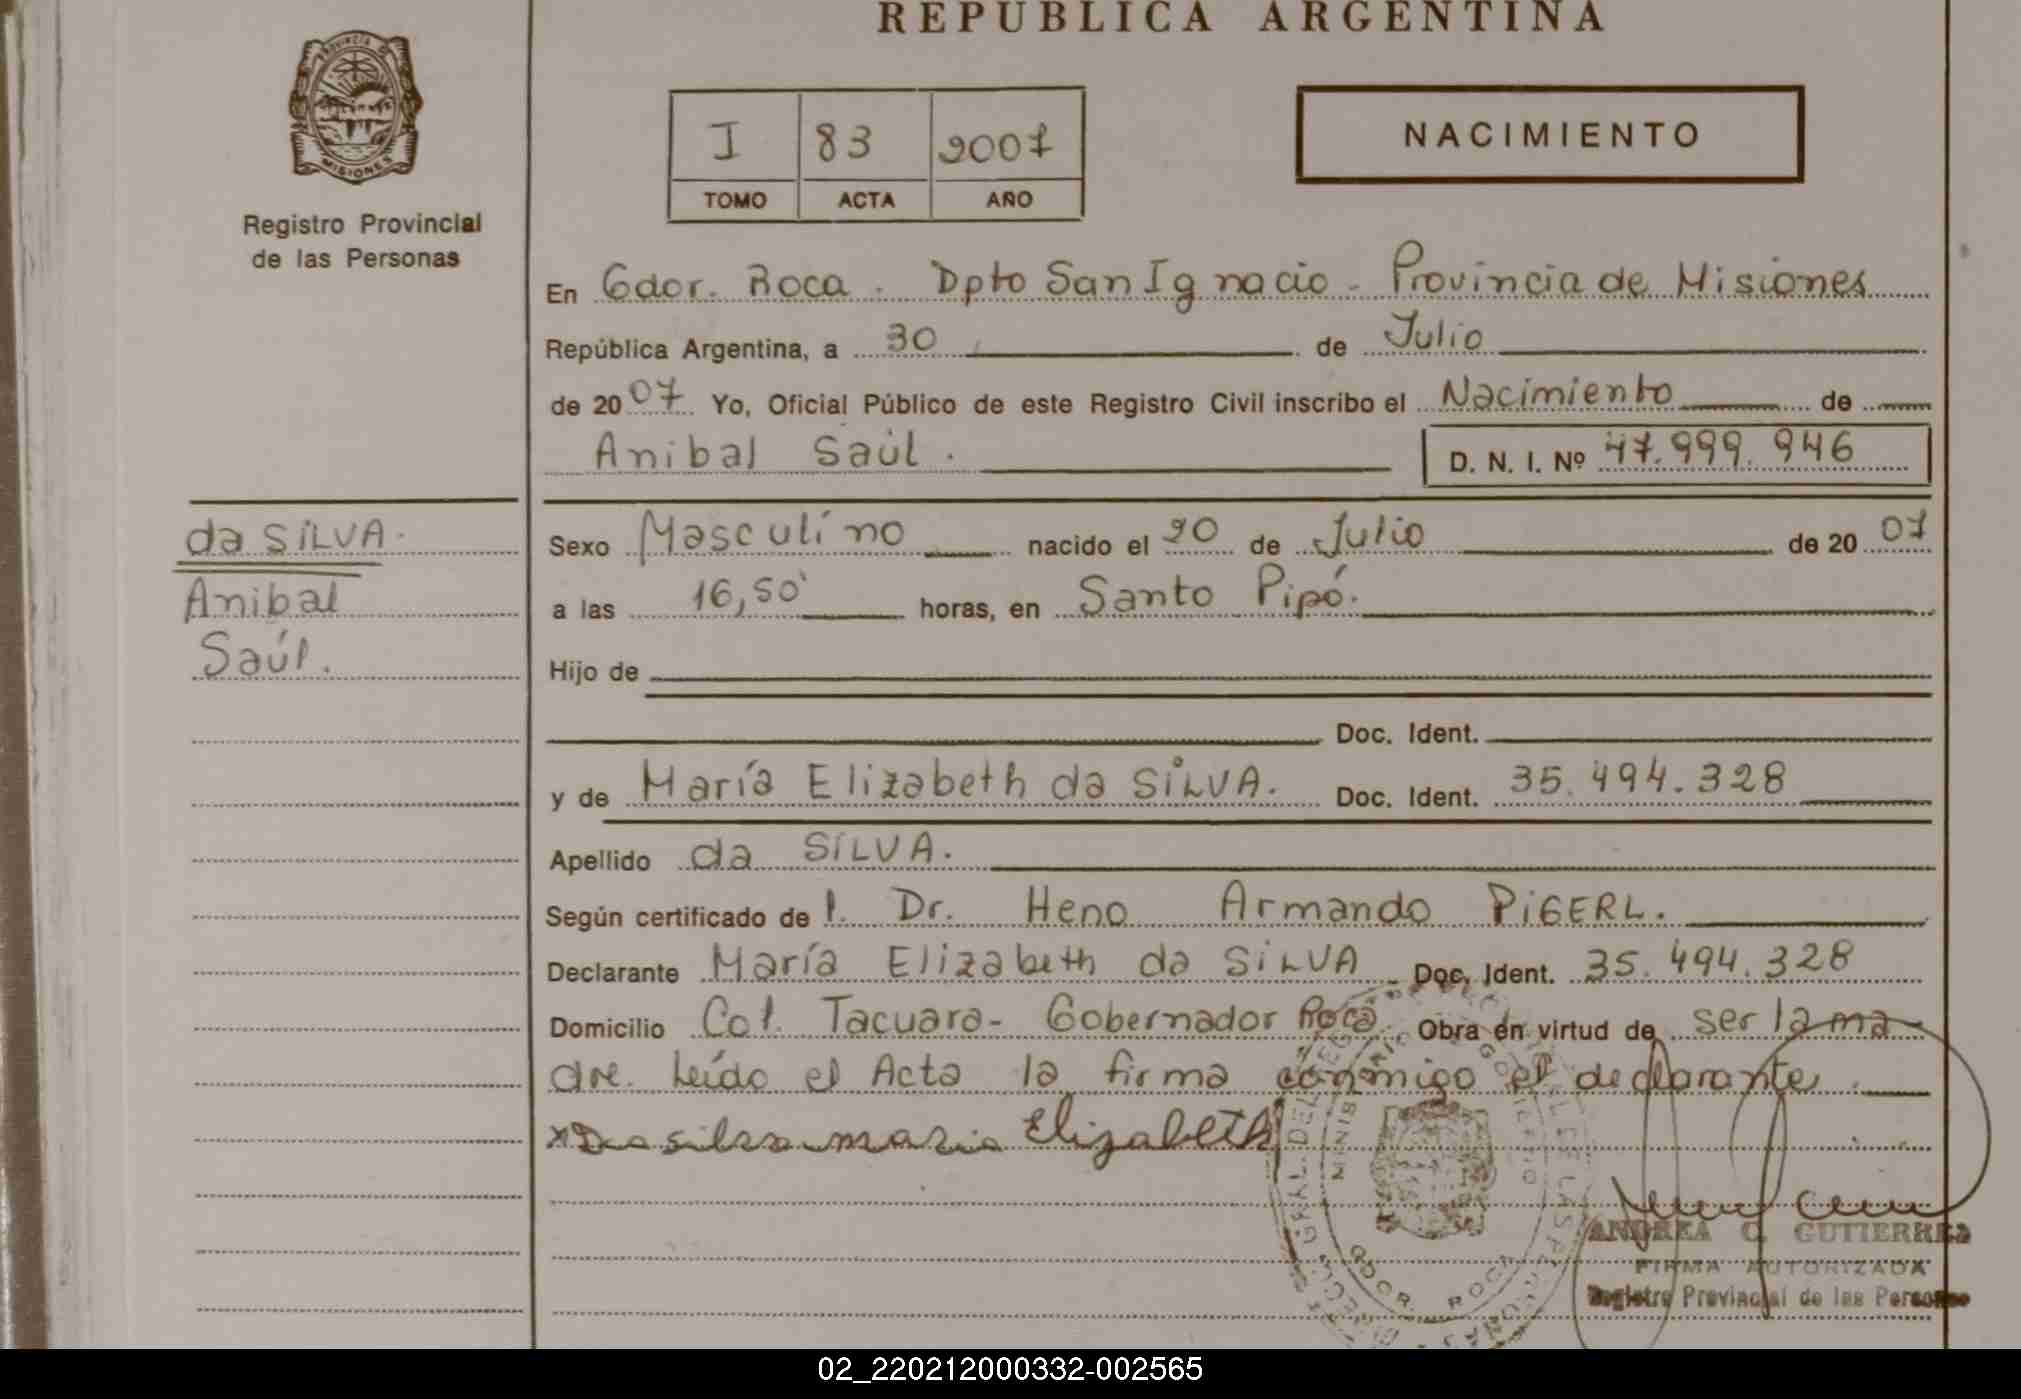 REPUBLICA ARGENTINA
PROVINCIA DE
MISIONES
Registro Provincial
de las Personas
I 83 2007
TOMO ACTA AÑO
NACIMIENTO
En Gdor. Roca. Dpto San Ignacio - Provincia de Misiones
República Argentina, a 30 de Julio
de 2007 Yo, Oficial Público de este Registro Civil inscribo el Nacimiento de
Anibal Saúl. D. N. I. Nº 47.999.946
da SILVA.
Anibal
Saúl.
Sexo Masculino nacido el 20 de Julio de 2007
a las 16,50 horas, en Santo Pipó.
Hijo de
Doc. Ident.
y de María Elizabeth da SILVA. Doc. Ident. 35.494.328
Apellido da SILVA.
Según certificado de l. Dr. Heno Armando PIGERL.
Declarante María Elizabeth da SILVA Doc. Ident. 35.494.328
Domicilio Col. Tacuara- Gobernador Roca. Obra en virtud de ser la ma-
dre. Leído el Acta la firma conmigo el declarante
x Da silva maria Elizabeth
GDOR. ROCA
ANDREA C. GUTIERREZ
FIRMA AUTORIZADA
Registro Provincial de las Personas
02_220212000332-002565